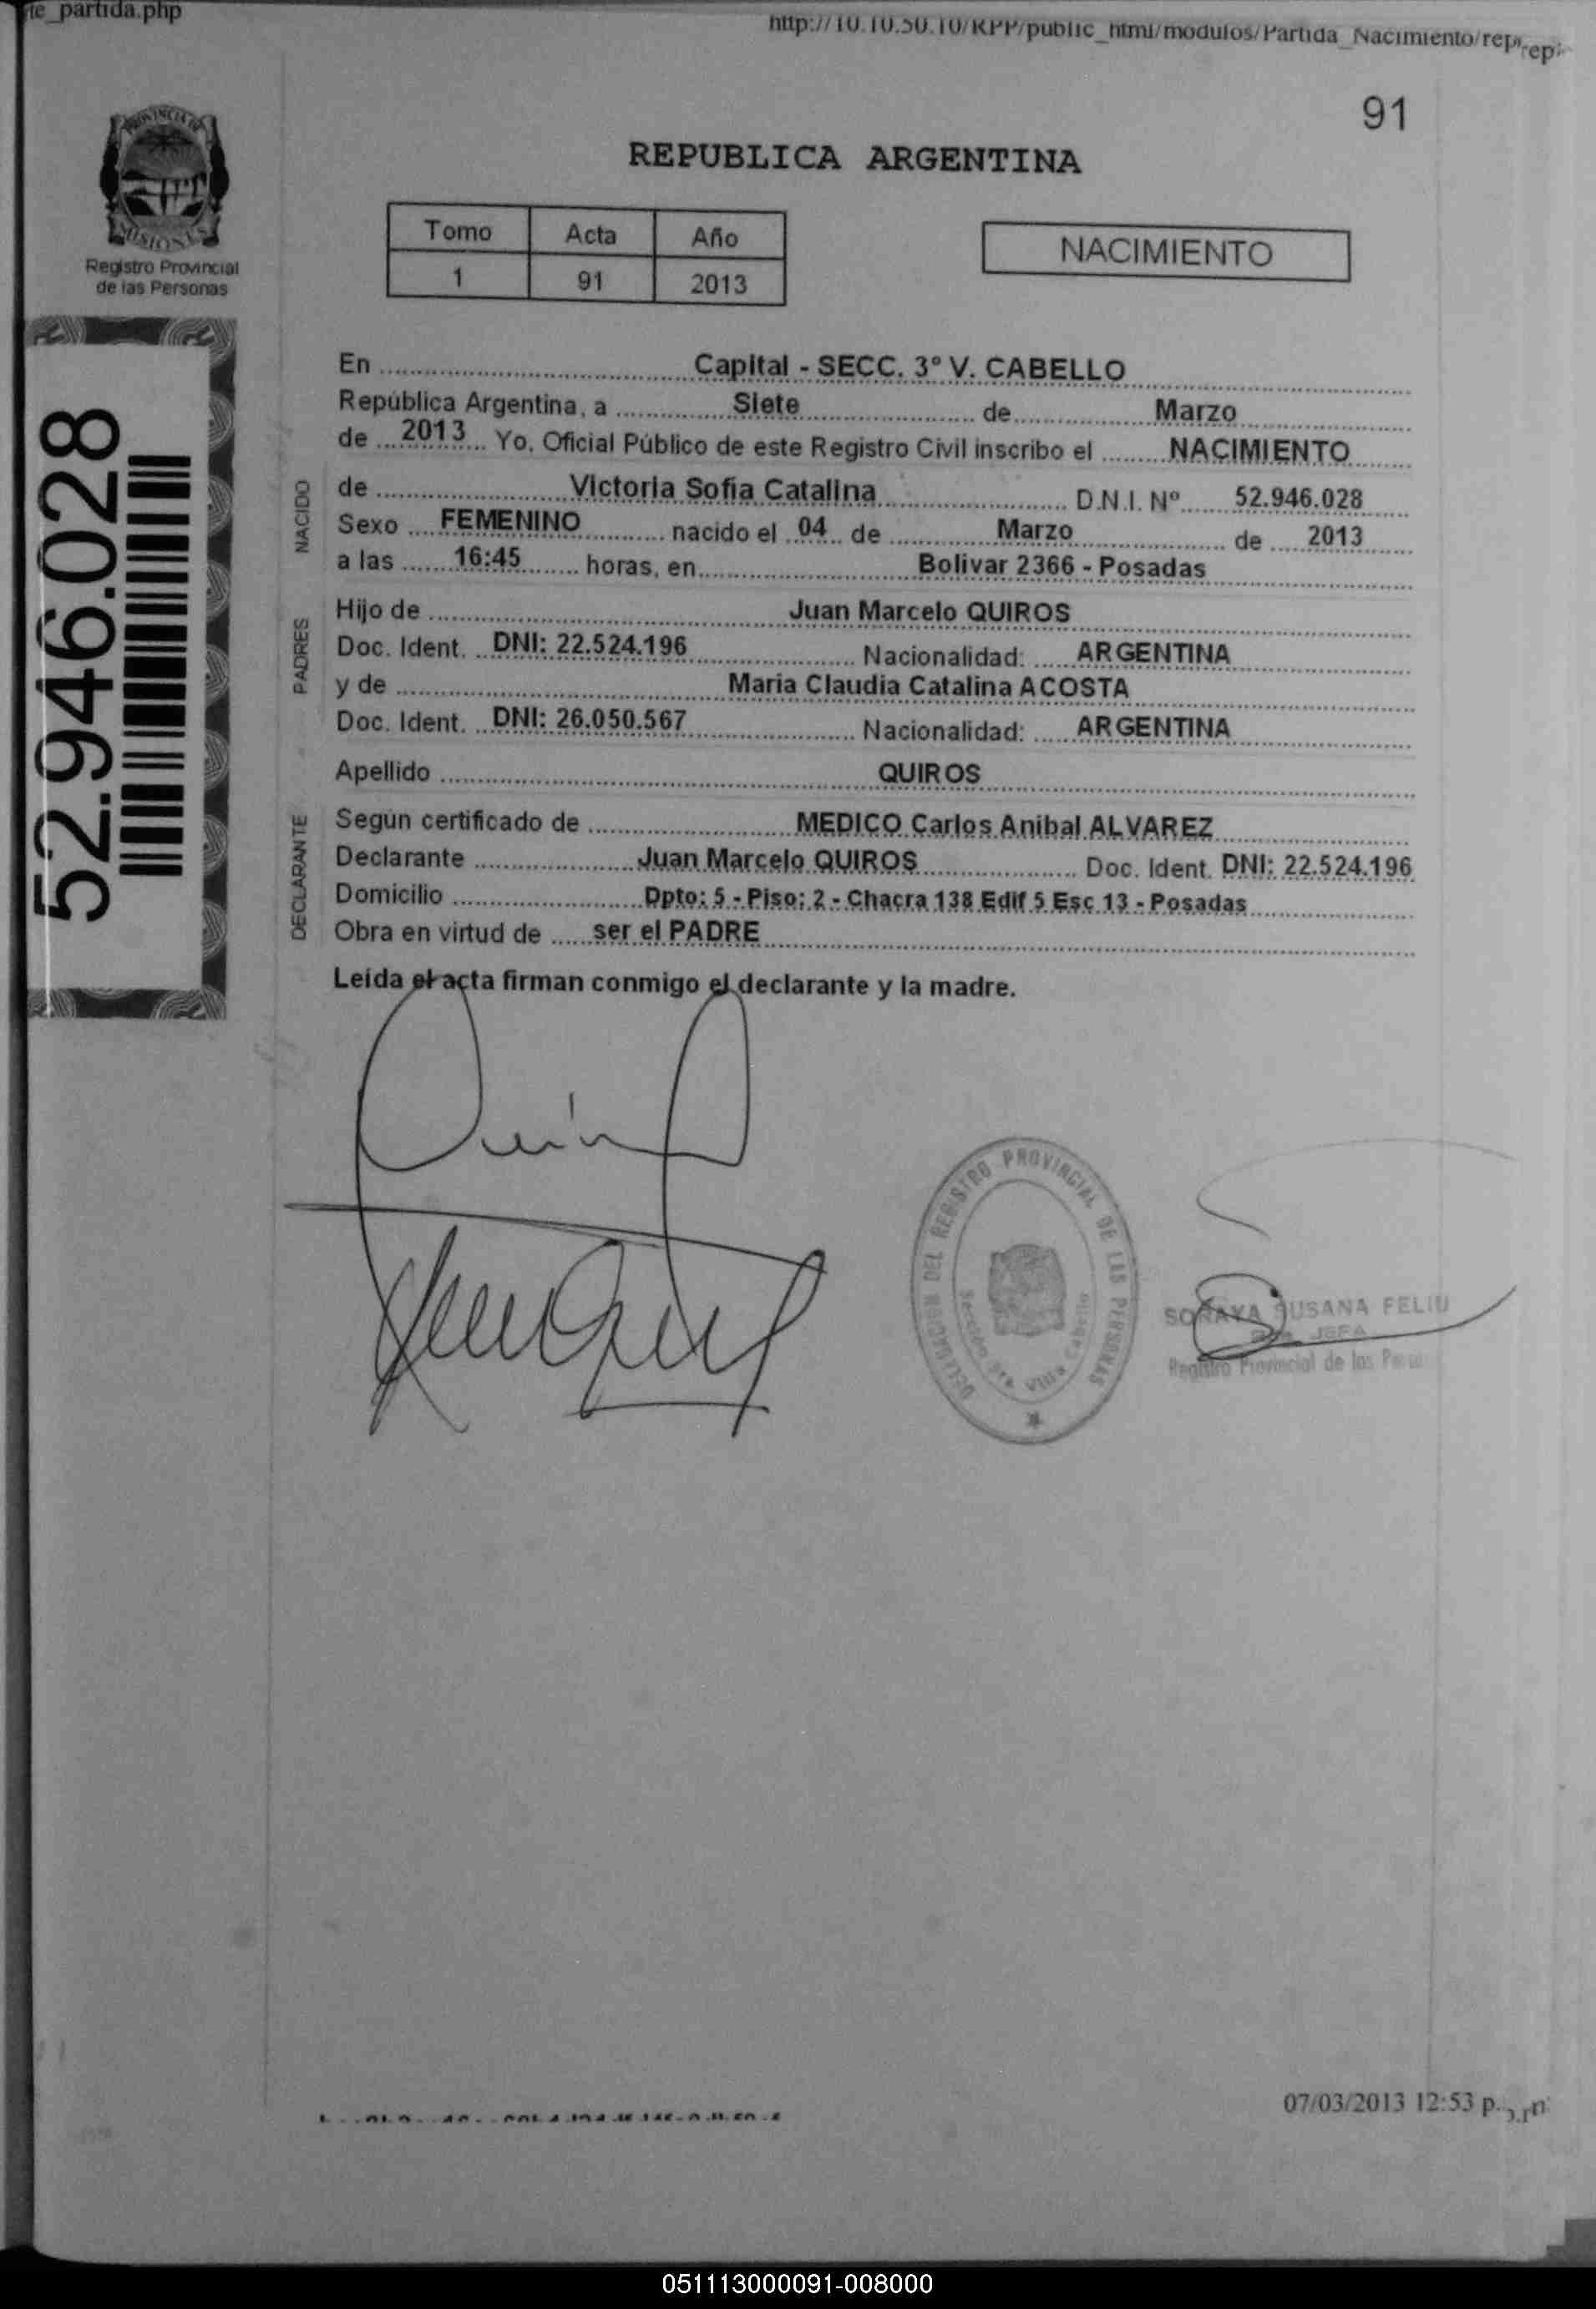 te_partida.php
http://10.10.50.10/RPP/public_html/modulos/Partida_Nacimiento/repi
91
PROVINCIA DE
MISIONES
Registro Provincial
de las Personas
REPUBLICA ARGENTINA
Tomo Acta Año
1 91 2013
NACIMIENTO
52.946.028
En Capital - SECC. 3° V. CABELLO
República Argentina, a Siete de Marzo
de 2013 Yo, Oficial Público de este Registro Civil inscribo el NACIMIENTO
NACIDO
de Victoria Sofia Catalina D.N.I. Nº 52.946.028
Sexo FEMENINO nacido el 04 de Marzo de 2013
a las 16:45 horas, en Bolivar 2366 - Posadas
PADRES
Hijo de Juan Marcelo QUIROS
Doc. Ident. DNI: 22.524.196 Nacionalidad: ARGENTINA
y de Maria Claudia Catalina ACOSTA
Doc. Ident. DNI: 26.050.567 Nacionalidad: ARGENTINA
Apellido QUIROS
DECLARANTE
Según certificado de MEDICO Carlos Anibal ALVAREZ
Declarante Juan Marcelo QUIROS Doc. Ident. DNI: 22.524.196
Domicilio Dpto: 5 - Piso: 2 - Chacra 138 Edif 5 Esc 13 - Posadas
Obra en virtud de ser el PADRE
Leída el acta firman conmigo el declarante y la madre.
DELEGACION DEL REGISTRO PROVINCIAL DE LAS PERSONAS
Sección 3ra Villa Cabello
SORAYA SUSANA FELIU
JEFA
Registro Provincial de las
07/03/2013 12:53 p.
051113000091-008000